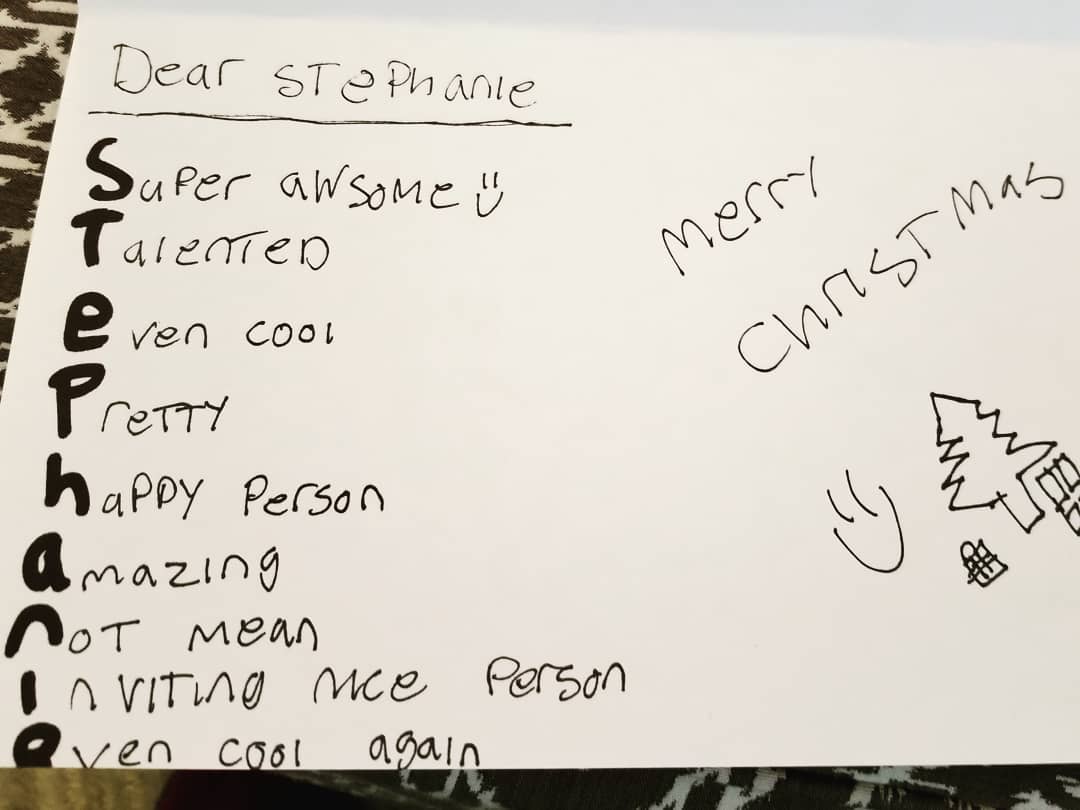 Dear STePhanIe
Super awsome
Talented
even cool
PreTTY
haPPY Person
amazIng
noT mean
InvITIng nIce Person
even cool again
merry
ChrISTmas